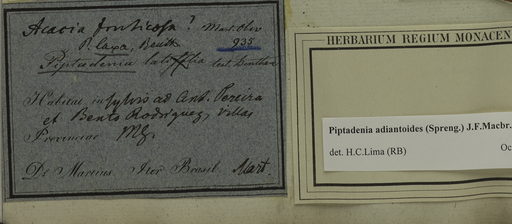 Acacia fruticosa? Mart. Obs
P. laxa, Benth. 935
Piptadenia latifolia test. Bentham
Habitat in sylvis ad Ant. Pereira
et Bento Rodriguez, villas
Provinciae MG.
De Martius Iter Brasil. Mart.
HERBARIUM REGIUM MONACEN
Piptadenia adiantoides (Spreng.) J.F.Macbr.
det. H.C.Lima (RB) Oc